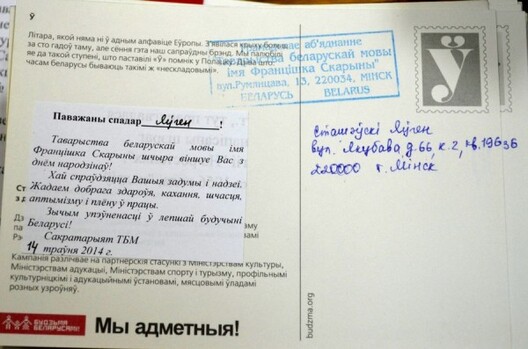 Літара, якой няма ні ў адным алфавіце Еўропы. З'явілася крыху больш
за сто гадоў таму, але сёння гэта наш сапраўдны брэнд. Мы палюбілі
яе да такой ступені, што паставілі «Ў» помнік у Полацку. Дзіўна што:
часам беларусы бываюць такімі ж «нескладовымі».
аб'яднанне
беларускай мовы
імя Францішка Скарыны"
вул.Румянцава, 13, 220034, МІНСК
БЕЛАРУСЬ BELARUS
Ў
Паважаны спадар Яўген !
Таварыства беларускай мовы імя
Францішка Скарыны шчыра віншуе Вас з
днём народзінаў!
Хай спраўдзяцца Вашыя задумы і надзеі.
Жадаем добрага здароўя, кахання, шчасця,
аптымізму і плёну ў працы.
Зычым упэўненасці ў лепшай будучыні
Беларусі!
Сакратарыят ТБМ
14 траўня 2014 г.
Сташэўскі Яўген
вул. Якубава д.66 к.2, кв.196
220000 г. Мінск
Кампания разлічвае на партнёрскія стасункі з Міністэрствам культуры,
Міністэрствам адукацыі, Міністэрствам спорту і турызму, профільнымі
культурніцкімі і адукацыйнымі ўстановамі, мясцовымі ўладамі
розных узроўняў.
БУДЗЬМА
БЕЛАРУСАМІ!
Мы адметныя!
budzma.org